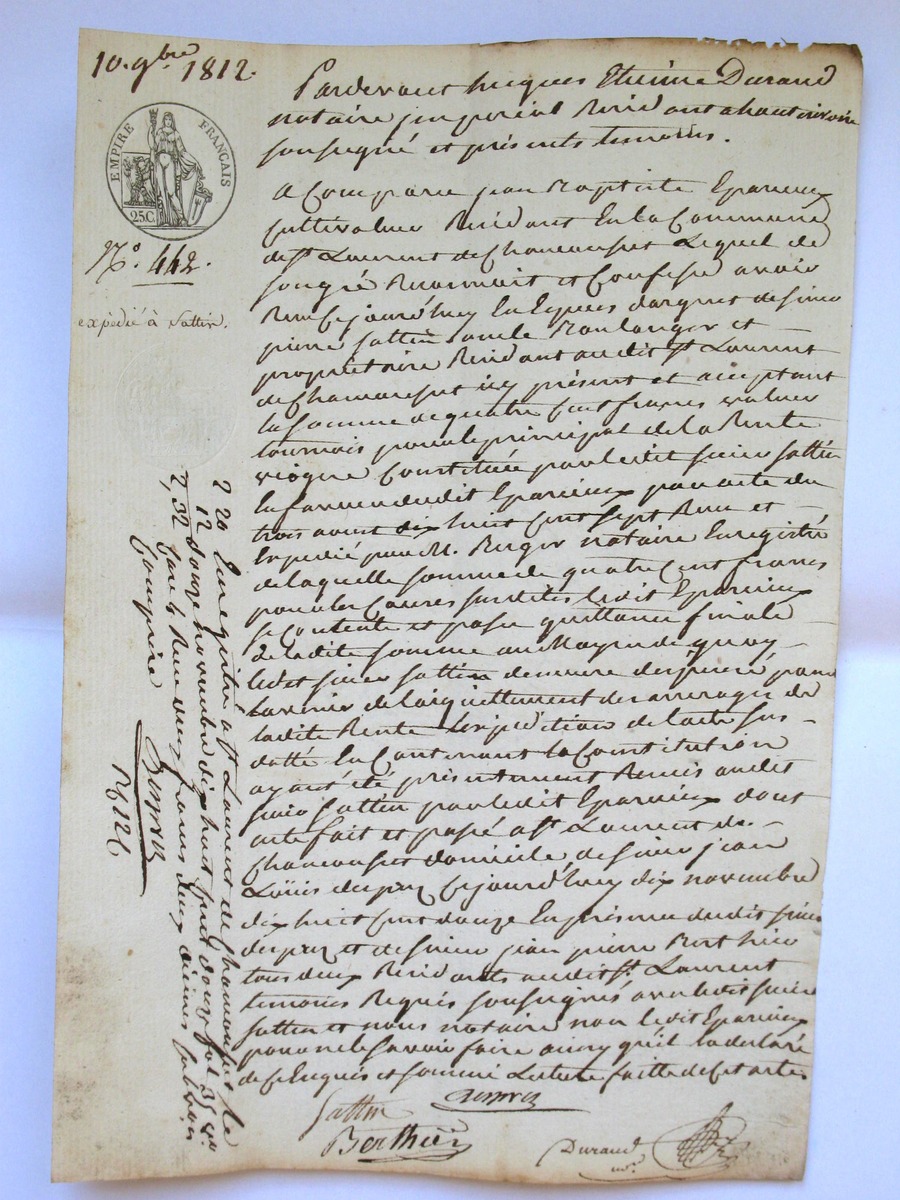 10. 9bre 1812.
EMPIRE FRANÇAIS
25C.
N°. 442.
expédié à Sattin.
Pardevant hugues Etienne Durand
notaire imperial Residant a haut rivoire
soussigné et présents temoins.
a Comparu jean Baptiste Eparvieux
cultivateur Residant En la Commune
de st. Laurent de Chamousset Lequel de
son gré Reconnait et Confesse avoir
Reçu Cejourd'huy En Espèces d'argent de sieur
pierre Sattin Boulanger et
propriétaire Residant au dit st. Laurent
de Chamousset icy présent et acceptant
la somme de quatre Cent francs valeur
tournois pour le principal de la Rente
viagre Constituée par le dit sieur Sattin
En faveur du dit Eparvieux par acte du
trois aout dix huit cent sept Reçu et
Expedié par M. notaire Enregistré
de laquelle somme de quatre Cent francs
pour les Causes susdites le dit Eparvieux
se Contente et passe quittance finale
de la dite somme au Moyen de quoy
le dit sieur Sattin demeure dispensé pour
lavenir de lacquittement des arrerages de
la dite Rente Lexpedition de lacte sus
datté En Contenant la Constitution
ayant été présentement Remis au dit
sieur Sattin par le dit Eparvieux dont
acte fait et passé a st. Laurent de
Chamousset domicile de sieur jean
Loüis Cejourd'huy dix novembre
dix huit cent douze En présence du dit sieur
et de sieur jean pierre Berthier
tous deux Residants au dit st. Laurent
temoins Requis soussignés avec le dit sieur
Sattin et nous notaire non le dit Eparvieux
pour ne le savoir faire ainsy qu'il la declaré
de ce Enquis et sommé Lecture faitte de cet acte
Sattin
Berthier
Durand
nre.
2 20 Enregistré a st. Laurent de Chamousset le
12 douze novembre dix huit cent douze fol 35 vo.
2,32 Reçu deux francs deux dixmes
Compris